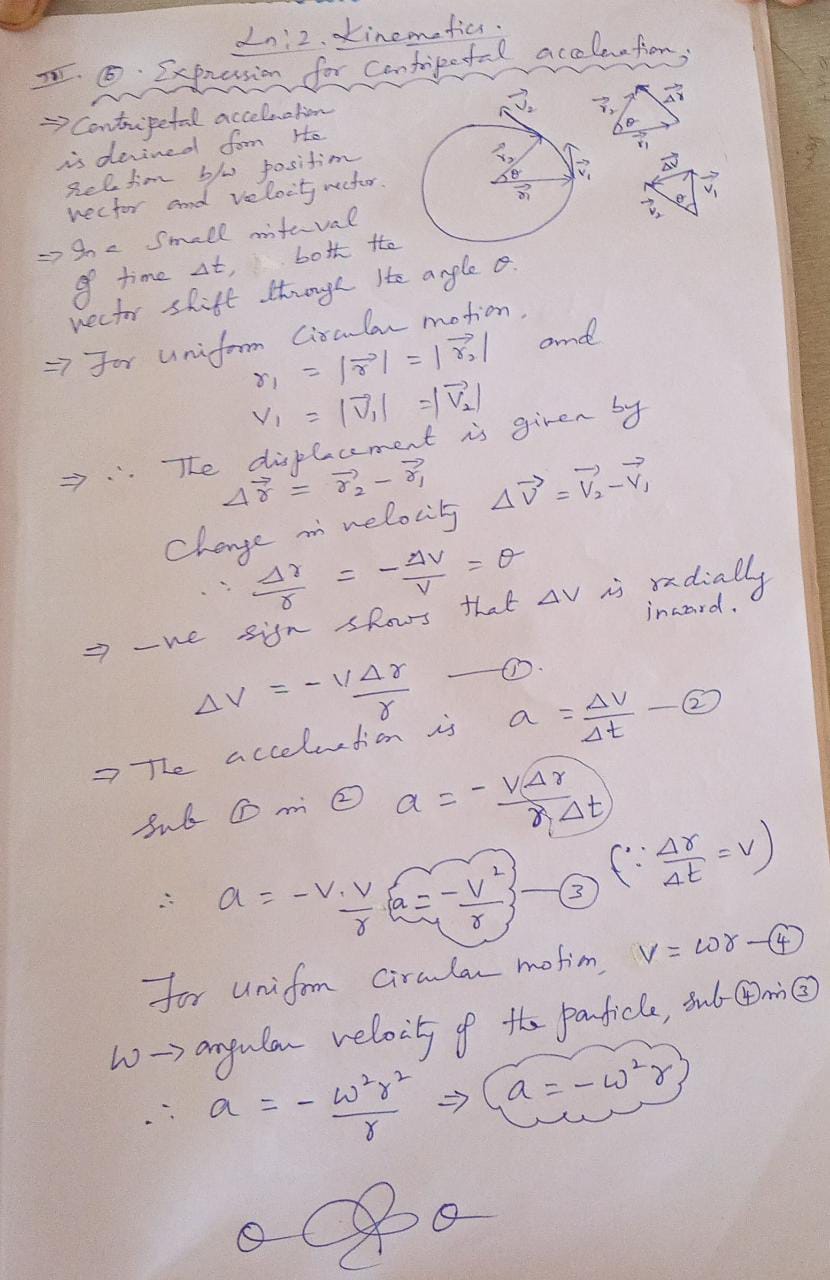 Ln:2. Kinematics.
III. ⑥. Expression for Centripetal acceleration;
⇒ Centripetal acceleration
is derived from the
relation b/w position
vector and velocity vector.
V⃗₂
r⃗₂
θ
r⃗₁
V⃗₁
r⃗₂ Δr⃗
θ
r⃗₁
ΔV⃗
V⃗₂ θ V⃗₁
⇒ In a small interval
of time Δt, both the
vector shift through the angle θ.
⇒ For uniform Circular motion.
r₁ = |r⃗| = |r⃗₂| and
V₁ = |V⃗₁| = |V⃗₂|
⇒ ∴ The displacement is given by
Δr⃗ = r⃗₂ - r⃗₁
Change in velocity ΔV⃗ = V⃗₂ - V⃗₁
∴ Δr/r = - ΔV/V = θ
⇒ -ve sign shows that ΔV is radially
inward.
ΔV = - V Δr/r — ①.
⇒ The acceleration is a = ΔV/Δt — ②
Sub ① in ② a = - VΔr/r Δt
∴ a = - V.V/r a = - V²/r — ③ (∵ Δr/Δt = V)
For Uniform Circular motion, V = ωr — ④
ω → angular velocity of the particle, sub ④ in ③
∴ a = - ω²r²/r ⇒ a = - ω²r